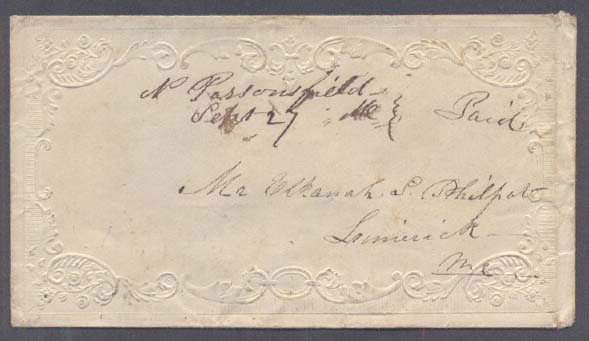 N Parsonsfield
Sept 27 Me } Paid
Mr Elkanah S. Philpot
Limerick
Me